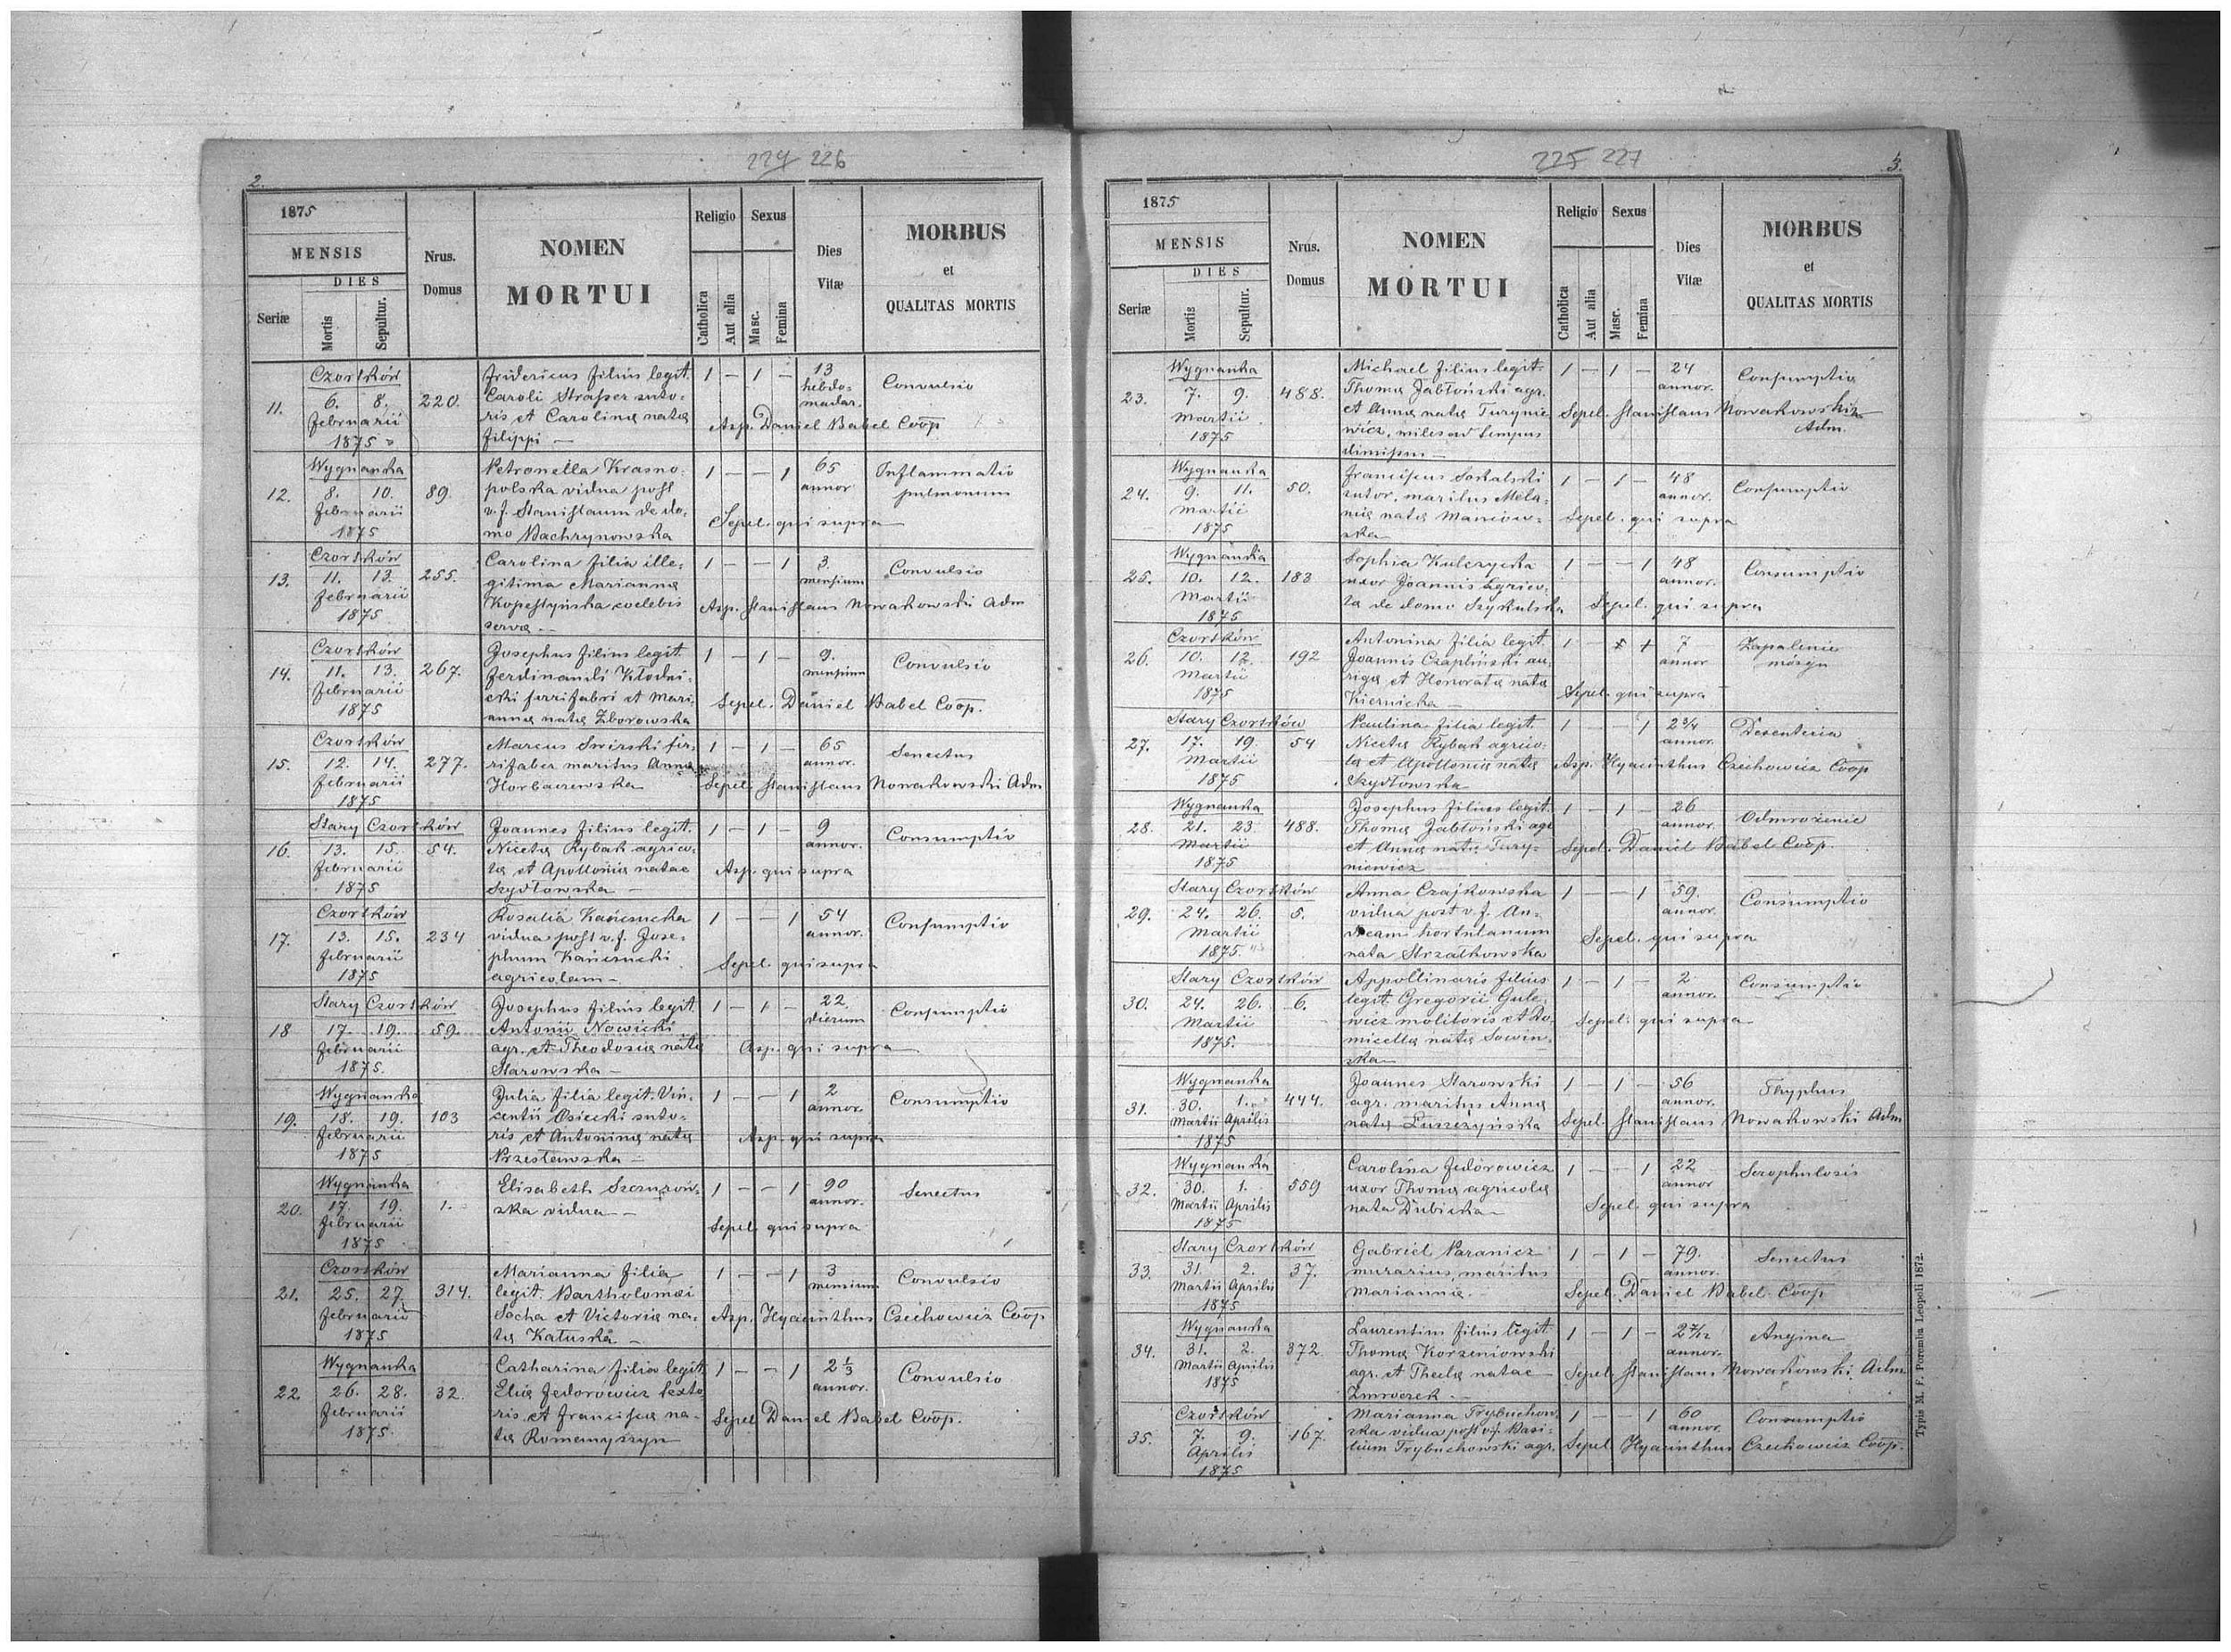 224 226
2.
1875
MENSIS
DIES
Seriæ
Mortis
Sepultur.
Nrus. Domus
NOMEN MORTUI
Religio
Catholica
Aut alia
Sexus
Masc.
Femina
Dies Vitæ
MORBUS
et
QUALITAS MORTIS
Czortków
11. 6. 8. 220.
Februarii
1875
Fridericus filius legit.
Caroli Strasser suto-
ris et Carolina nata
Filippi —
1 — 1 —
13
hebdo-
madar.
Convulsio
Asp. Daniel Babel Coop
Wygnanka
12. 8. 10. 89.
Februarii
1875
Petronella Krasno-
polska vidua post
v. f. Stanislaum de do-
mo Bachrynowska
1 — — 1
65
annor
Inflammatio
pulmonum
Sepel. qui supra —
Czortków
13. 11. 13. 255.
Februarii
1875
Carolina filia ille-
gitima Mariannæ
Kopestyńska coelebis
servæ —
1 — — 1
3.
mensium
Convulsio
Asp. Stanislaus Nowakowski Adm
Czortków
14. 11. 13. 267.
Februarii
1875
Josephus filius legit.
Ferdinandi Kłodni-
cki ferrifabri et Mari-
annæ natæ Zborowska
1 — 1 —
9.
mensium
Convulsio
Sepel. Daniel Babel Coop.
Czortków
15. 12. 14. 277.
Februarii
1875
Marcus Swirski fer-
rifaber maritus Annæ
Horbaczewska
1 — 1 —
65
annor.
Senectus
Sepel. Stanislaus Nowakowski Adm
Stary Czortków
16. 13. 15. 54.
Februarii
1875
Joannes filius legit.
Nicetæ Rybak agrico-
læ et Apolloniæ natae
Szydłowska —
1 — 1 —
9
annor.
Consumptio
Asp. qui supra
Czortków
17. 13. 15. 234
Februarii
1875
Rosalia Kańczucka
vidua post v. f. Jose-
phum Kańczucki
agricolam —
1 — — 1
54
annor.
Consumptio
Sepel. qui supra
Stary Czortków
18 17. 19. 59.
Februarii
1875.
Josephus filius legit
Antonii Nowicki
agr. et Theodosiæ natæ
Starowska —
1 — 1 —
22
dierum
Consumptio
Asp. qui supra
Wygnanka
19. 18. 19. 103
Februarii
1875
Julia filia legit. Vin-
centii Osiecki suto-
ris et Antoninæ natæ
Przestawska —
1 — — 1
2
annor.
Consumptio
Asp. qui supra
Wygnanka
20. 17. 19. 1.
Februarii
1875
Elisabeth
ska vidua —
1 — — 1
90
annor.
Senectus
Sepel. qui supra
Czortków
21. 25. 27. 314.
Februarii
1875
Marianna filia
legit. Bartholomæi
Socha et Victoriæ na-
tæ Katuska —
1 — — 1
3
mensium
Convulsio
Asp. Hyacinthus Czechowicz Coop
Wygnanka
22 26. 28. 32.
Februarii
1875.
Catharina filia legit.
Eliæ Fedorowicz texto
ris et Franciscæ na-
tæ Romanyszyn
1 — — 1
2 1/3
annor.
Convulsio
Sepel Daniel Babel Coop.
225 227
3.
1875
MENSIS
DIES
Seriæ
Mortis
Sepultur.
Nrus. Domus
NOMEN MORTUI
Religio
Catholica
Aut alia
Sexus
Masc.
Femina
Dies Vitæ
MORBUS
et
QUALITAS MORTIS
Wygnanka
23. 7. 9. 488.
Martii
1875
Michael filius legit-
Thomæ Jabłoński agr.
et Annæ natæ Turynie
wicz, miles ad tempus
dimissus —
1 — 1 —
24
annor.
Consumptio
Sepel. Stanislaus Nowakowski
Adm.
Wygnanka
24. 9. 11. 50.
Martii
1875
Franciscus Sokalski
sutor, maritus Mela-
niæ natæ Maniow-
ska
1 — 1 —
48
annor.
Consumptio
Sepel. qui supra
Wygnanka
25. 10. 12. 183
Martii
1875
Sophia Kulczycka
uxor Joannis agrico-
læ de domo Szykulska
1 — — 1
48
annor.
Consumptio
Sepel. qui supra
Czortków
26. 10. 12. 192
Martii
1875
Antonina filia legit.
Joannis Czapliński au-
rigæ et Honoratæ natæ
Kiernicka —
1 —
7
annor
Zapalenie
mózgu
Sepel. qui supra
Stary Czortków
27. 17. 19. 54
Martii
1875
Paulina filia legit.
Nicetæ Rybak agrico-
læ et Apolloniæ natæ
Szydłowska
1 — — 1
2 3/4
annor.
Desenteria
Asp. Hyacinthus Czechowicz Coop
Wygnanka
28. 21. 23. 488.
Martii
1875
Josephus filius legit.
Thomæ Jabłoński agr
et Annæ natæ Tury-
niewicz
1 — 1 —
26
annor.
Odmrożenie
Sepel. Daniel Babel Coop.
Stary Czortków
29. 24. 26. 5.
Martii
1875
Anna Czajkowska
vidua post v. f. An-
dream hortulanum
nata Strzałkowska
1 — — 1
59.
annor.
Consumptio
Sepel. qui supra
Stary Czortków
30. 24. 26. 6.
Martii
1875.
Appollinaris filius
legit. Gregorii Gule-
wicz molitoris et Do-
micellæ natæ Sowin-
ska —
1 — 1 —
2
annor.
Consumptio
Sepel. qui supra
Wygnanka
31. 30. 1. 444.
Martii Aprilis
1875
Joannes Starowski
agr. maritus Annæ
natæ Łuszczyńska
1 — 1 —
56
annor.
Thyphus
Sepel. Stanislaus Nowakowski Adm
Wygnanka
32. 30. 1. 559
Martii Aprilis
1875
Carolina Fedorowicz
uxor Thomæ agricolæ
nata Dubicka —
1 — — 1
22
annor
Scrophulosis
Sepel. qui supra
Stary Czortków
33. 31. 2. 37.
Martii Aprilis
1875
Gabriel Paranicz
murarius, maritus
Mariannæ —
1 — 1 —
79.
annor.
Senectus
Sepel. Daniel Babel Coop
Wygnanka
34. 31. 2. 372
Martii Aprilis
1875
Laurentius filius legit
Thomæ Korzeniowski
agr. et Theclæ natae
1 — 1 —
2 7/12
annor.
Angina
Sepel. Stanislaus Nowakowski Adm
Czortków
35. 7. 9. 167.
Aprilis
1875
Marianna Trybuchow-
ska vidua post v. f. Basi-
lium Trybuchowski agr.
1 — — 1
60
annor.
Consumptio
Sepel Hyacinthus Czechowicz Coop.
Typis M. F. Poremba Leopoli 1872.